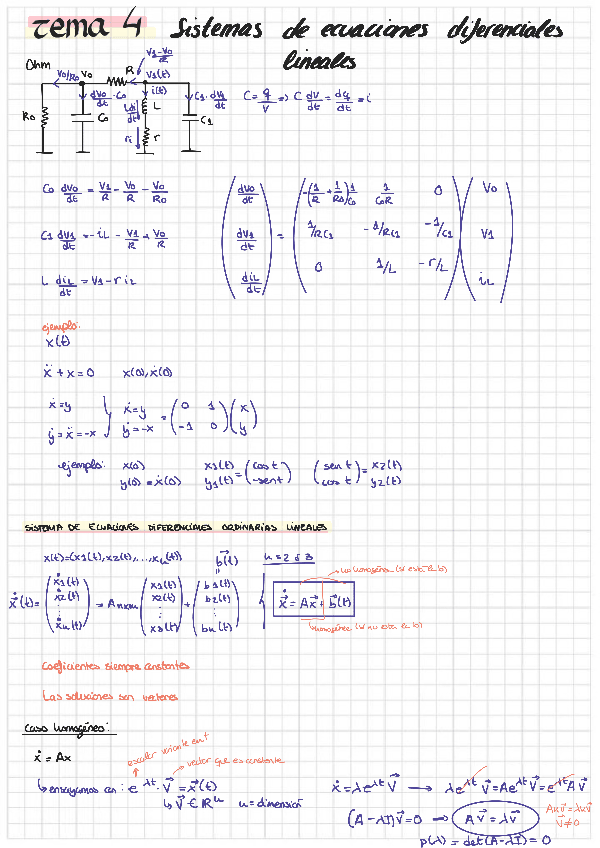 Tema 4 Sistemas de ecuaciones diferenciales
lineales
Ohm
V1-V0/R
V0/R0 V0 R V1(t)
dV0/dt · C0 i(t) C1 · dV1/dt C = q/V => C dV/dt = dq/dt = i
R0 C0 L di/dt L C1
ri r
C0 dV0/dt = V1/R - V0/R - V0/R0
C1 dV1/dt = -iL - V1/R + V0/R
L diL/dt = V1 - r iL
(dV0/dt) = (-(1/R + 1/R0) 1/C0 1/C0R 0) (V0)
(dV1/dt) (1/RC1 -1/RC1 -1/C1) (V1)
(diL/dt) (0 1/L -r/L) (iL)
ejemplo:
x(t)
ẍ + x = 0 x(0), ẋ(0)
ẋ = y
ẏ = ẍ = -x
ẋ = y
ẏ = -x = (0 1 -1 0) (x y)
ejemplo: x(0) x1(t) = (cos t) (sen t) = x2(t)
y(0) = ẋ(0) y1(t) (-sen t) (cos t) y2(t)
SISTEMA DE ECUACIONES DIFERENCIALES ORDINARIAS LINEALES
x(t) = (x1(t), x2(t), ..., xn(t)) b(t) n = 2 ó 3
ẋ(t) = (ẋ1(t) ẋ2(t) ⋮ ẋn(t)) = Anxn (x1(t) x2(t) ⋮ x3(t)) + (b1(t) b2(t) ⋮ bn(t))
no homogénea (si está la b)
ẋ = Ax + b(t)
homogénea (si no está la b)
Coeficientes siempre constantes
Las soluciones son vectores
Caso homogéneo:
ẋ = Ax
escalar variante en t
vector que es constante
ensayamos con: e^λt · v = x(t)
v ∈ ℝ^n n = dimensión
ẋ = λe^λt v → λe^λt v = Ae^λt v = e^λt A v
(A - λI)v = 0 → Av = λv
v ≠ 0
p(λ) = det(A - λI) = 0